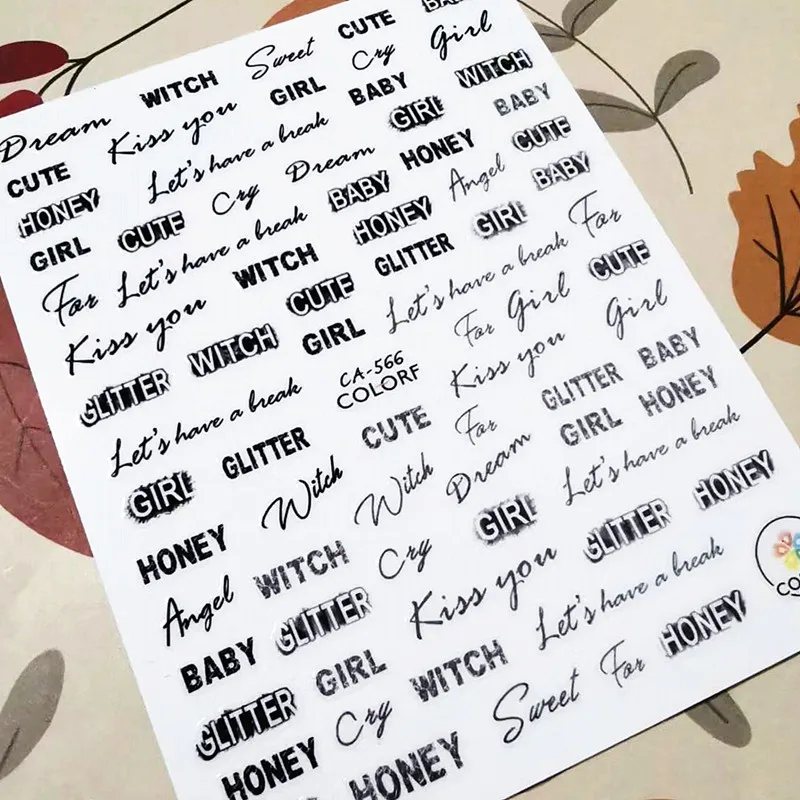 WITCH Sweet CUTE
Dream Kiss you GIRL Cry Girl
CUTE Let's have a break BABY WITCH
HONEY Cry Dream GIRL BABY
GIRL CUTE BABY HONEY CUTE
For Let's have a break HONEY Angel BABY
Kiss you WITCH GLITTER GIRL For
GLITTER WITCH CUTE Let's have a break CUTE
GIRL For Girl Girl
Let's have a break CA-566 Kiss you
COLORF
GIRL GLITTER CUTE For GLITTER BABY
HONEY Witch Witch Dream GIRL HONEY
Angel WITCH Cry GIRL Let's have a break
BABY GLITTER Kiss you GLITTER HONEY
GLITTER GIRL WITCH Let's have a break
HONEY Cry Sweet For HONEY
HONEY